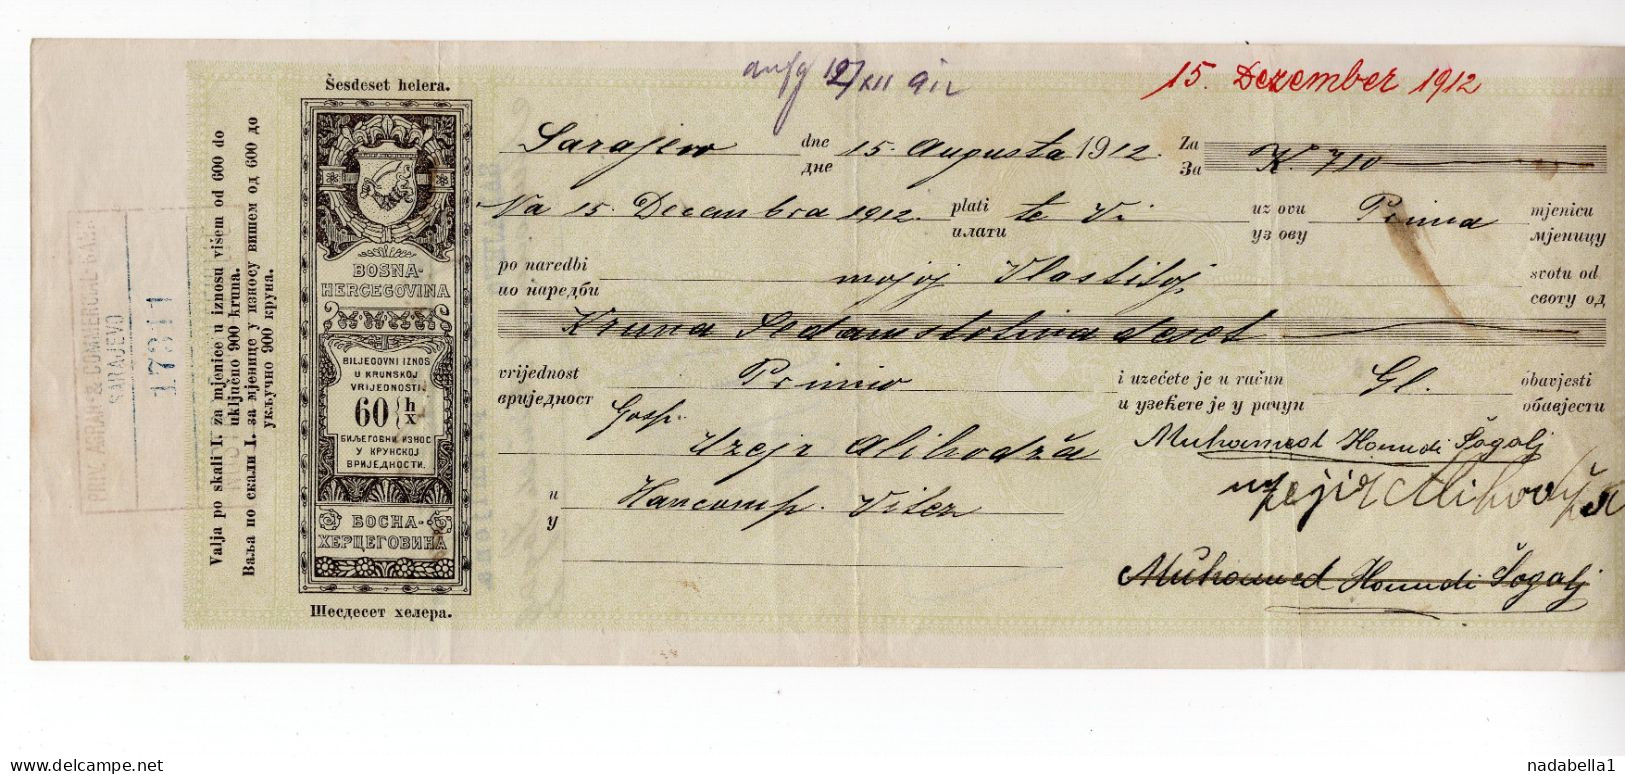 15. Dezember 1912
Šesdeset helera.
Sarajevo dne 15. Augusta 1912. Za K. 710
дне За
Na 15. Decembra 1912. plati te Vi uz ovu Prima mjenicu
плати уз ову мјеницу
po naredbi mojoj Vlastitoj svotu od
по наредби своту од
Kruna Sedamstotina deset
vrijednost Primio i uzećete je u račun Gl. obavjesti
вриједност и узећете је у рачун обавјести
Gosp.
Uzejr Alihodža
Muhamed
u
у
Vitez
Muhamed
BOSNA-
HERCEGOVINA
BILJEGOVNI IZNOS
U KRUNSKOJ
VRIJEDNOSTI.
60 h
х
БИЉЕГОВНИ ИЗНОС
У КРУНСКОЈ
ВРИЈЕДНОСТИ.
БОСНА-
ХЕРЦЕГОВИНА
Шесдесет хелера.
Valja po skali I. za mjenice u iznosu višem od 600 do
uključno 900 kruna.
Ваља по скали I. за мјенице у износу вишем од 600 до
укључно 900 круна.
PRIV. AGRAR & COMERCIAL BANK
SARAJEVO
delcampe.net
nadabella1